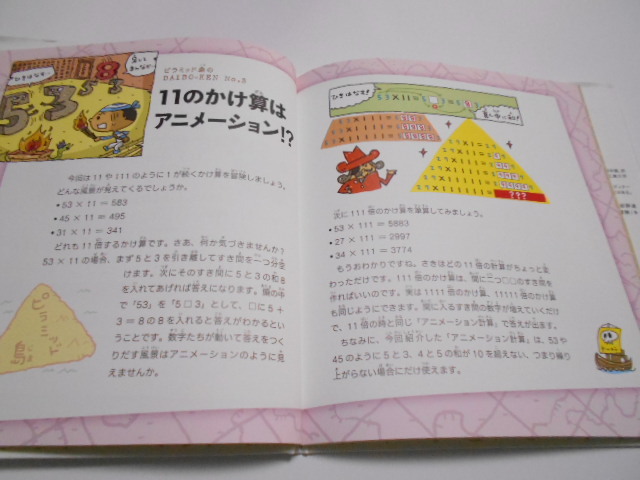 ピラミッド島の
DAIBO-KEN No.5
11のかけ算は
アニメーション!?
今回は11や111のように1が続くかけ算を冒険しましょう。
どんな風景が見えてくるでしょうか。
• 53 × 11 = 583
• 45 × 11 = 495
• 31 × 11 = 341
どれも11倍するかけ算です。さあ、何か気づきませんか?
53 × 11の場合、まず5と3を引き離してすき間を一つ分空
けます。次にそのすき間に5と3の和8
を入れてあげれば答えになります。頭の中
で「53」を「5□3」として、□に5+
3=8の8を入れると答えがわかるとい
うことです。数字たちが動いて答えをつく
りだす風景はアニメーションのように見
えませんか。
ピラミッド
島
ひきはなせ!
次に111倍のかけ算を筆算してみましょう。
• 53 × 111 = 5883
• 27 × 111 = 2997
• 34 × 111 = 3774
もうおわかりですね。さきほどの11倍の計算がちょっと変
わっただけです。111倍のかけ算は、間に二つ□□のすき間を
作ればいいのです。実は1111倍のかけ算、11111倍のかけ算
も同じようにできます。間に入るすき間の数字が増えていくだけ
で、11倍の時と同じ「アニメーション計算」で答えが出ます。
ちなみに、今回紹介した「アニメーション計算」は、53や
45のように5と3、4と5の和が10を超えない、つまり繰り
上がらない場合にだけ使えます。